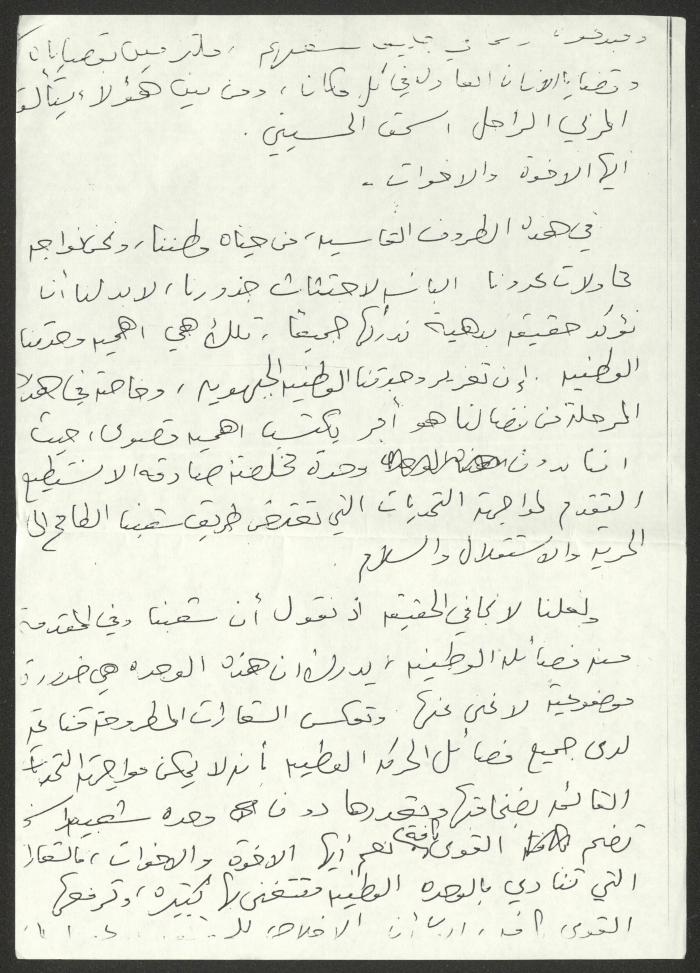 في شعبهم ، ملتزمين بقضاياه
وقضايا الانسان العادله في كل مكان ، ومن بين هؤلاء يتألق
المربي الراحل اسحق الحسيني .
ايها الاخوة والاخوات -
في هذه الظروف القاسيه من حياة وطننا ، ونحن نواجه
محاولات عدونا لاجتثاث جذورنا ، لا بد لنا أن
نؤكد حقيقه بدهية ندركها جميعًا ، تلك هي اهميه وحدتنا
الوطنيه . إن تعزيز وحدتنا الوطنيه ، وخاصة في هذه
المرحلة من نضالنا هو أمر يكتسب اهميه قصوى ، حيث
اننا بدون وحدة مخلصة صادقه لا نستطيع
التقدم لمواجهة التحديات التي تعترض طريق شعبنا الطامح الى
الحريه والاستقلال والسلام .
ولعلنا لا نجافي الحقيقه اذ نقول أن شعبنا وفي المقدمة
منه فصائله الوطنيه ، يدرك ان هذه الوحده هي ضرورة
موضوعية لا غنى عنها وتعكس الشعارات المطروحة قناعة
لدى جميع فصائل الحركه الوطنيه بأنه لا يمكن مواجهة التحديات
القائمه بضخامتها دون وحده شعبيه
تضم القوى كافة ، نعم أيها الاخوة والاخوات ، فالشعارات
التي تنادي بالوحده الوطنيه نتغنى بها كثيرا ، وترفعها
القوى كافه ، أن